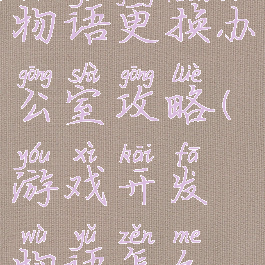 物语更换办
gōng shì gōng lüè
公室攻略(
yóu xì kāi fā
游戏开发
wù yǔ zěn me
物语怎么